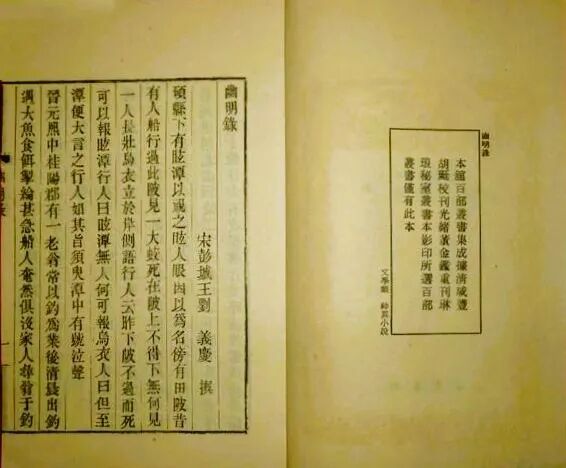 幽明錄
本館百部叢書集成據清咸豐
胡珽校刊光緒董金鑑重刊琳
琅秘室叢書本影印所選百部
叢書僅有此本
文學類 神異小說
幽明錄
宋彭城王劉 義慶 撰
碩縣下有眩潭以視之眩人眼因以爲名傍有田陂昔
有人船行過此陂見一大蛟死在陂上不得下無何見
一人長壯烏衣立於岸側語行人云昨下陂不過而死
可以報眩潭行人曰眩潭無人何可報烏衣人曰但至
潭便大言之行人如其旨須臾潭中有號泣聲
晉元熙中桂陽郡有一老翁常以釣爲業後清晨出釣
遇大魚食餌掣綸甚急船人奄然俱沒家人尋翁于釣